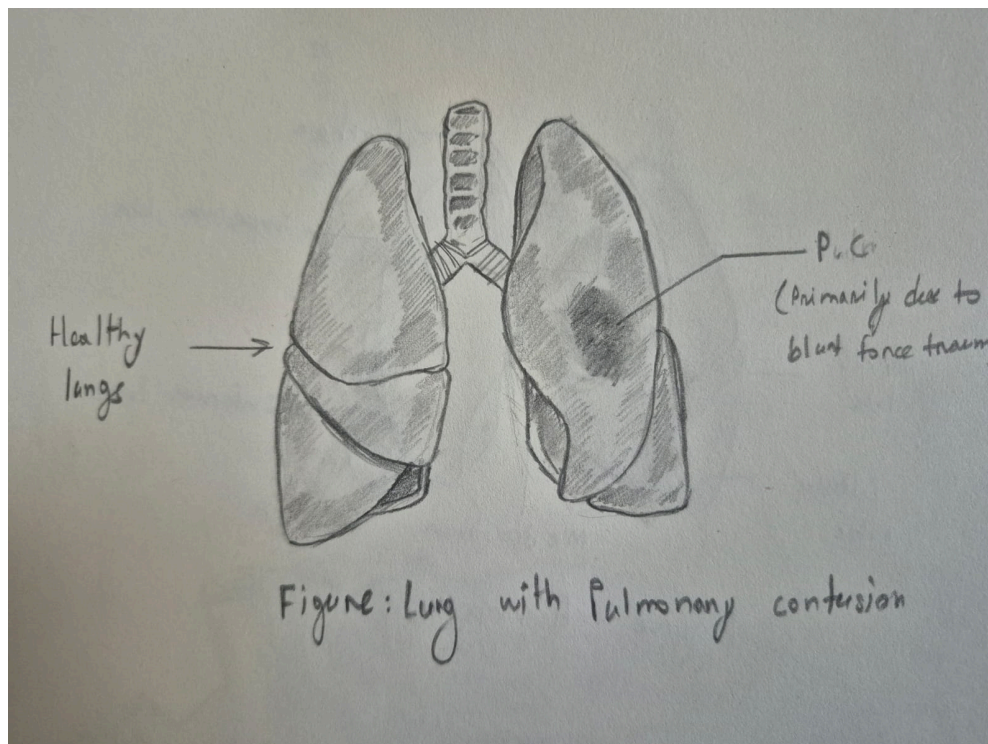 Healthy
lungs
(Primarily due to
blunt force
Figure: Lung with Pulmonary contusion